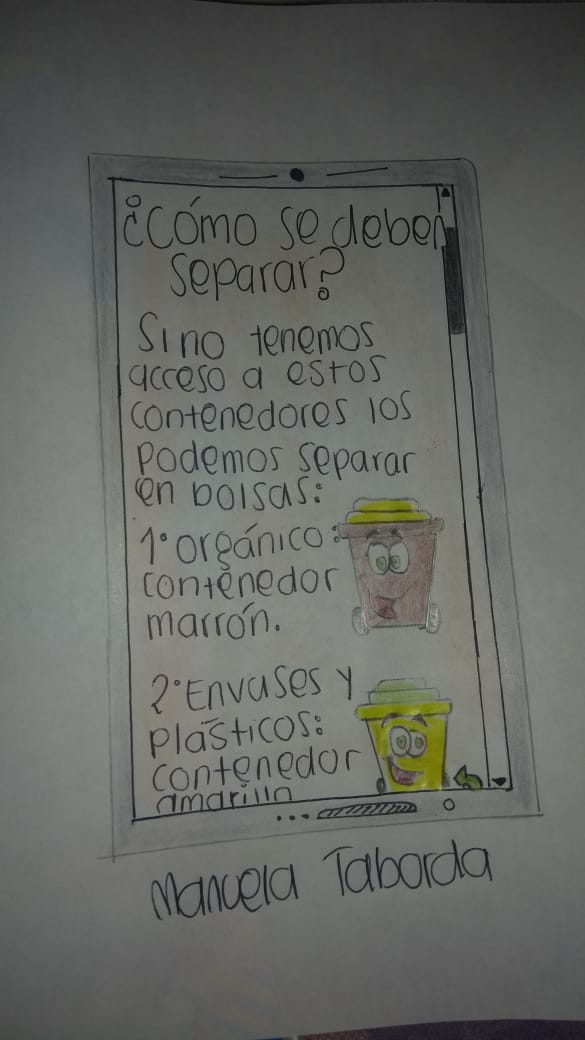 ¿Cómo se deben
separar?
Si no tenemos
acceso a estos
contenedores los
podemos separar
en bolsas:
1° orgánico:
contenedor
marrón.
2° Envases y
plásticos:
contenedor
amarillo
Manuela Taborda